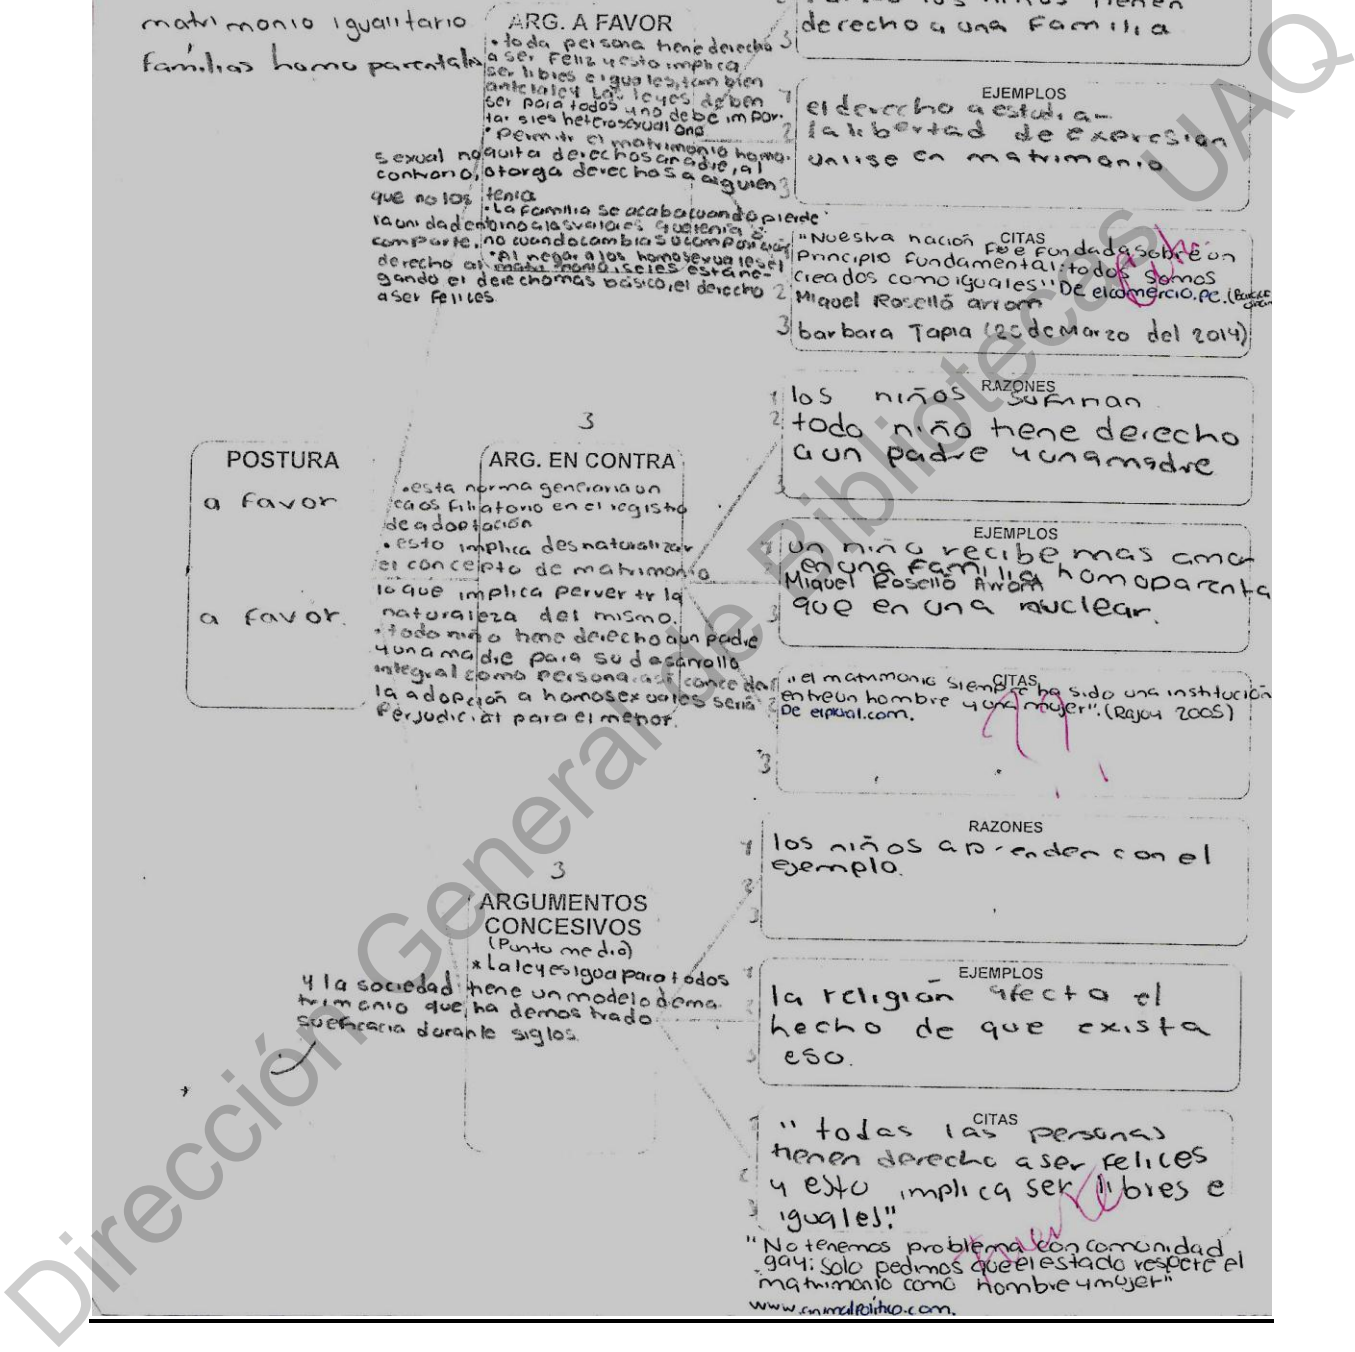 matrimonio igualitario
familias homoparentales
ARG. A FAVOR
• toda persona tiene derecho
a ser Feliz y esto implica
ser libres e iguales, tambien
ante la ley. Las leyes deben
ser para todos y no debe impor-
tar si es heterosexual o no
• Permitir el matrimonio homo-
sexual no quita derechos a nadie, al
contrario, otorga derechos a alguien
que no los tenia
• La familia se acaba cuando pierde
la unidad entorno a los valores que tenia o
comparte, no cuando cambia su composición
• Al negar a los homosexuales el
derecho al matrimonio, se les esta ne-
gando el derecho mas basico, el derecho
a ser felices
los niños tienen
3 derecho a una Familia
EJEMPLOS
1 el derecho a estudia-
2 la libertad de expresion
3 unirse en matrimonio
CITAS
1 "Nuestra nación fue fundada sobre un
principio fundamental: todos somos
creados como iguales" De elcomercio.pe.
2 Miguel Roselló arrom
3 barbara Tapia (25 de Marzo del 2014)
POSTURA
a favor
a favor.
3
ARG. EN CONTRA
• esta norma generaria un
caos filiatorio en el registro
de adoptación
• esto implica desnaturalizar
el concepto de matrimonio
lo que implica pervertir la
naturaleza del mismo.
• todo niño tiene derecho a un padre
y una madre para su desarrollo
integral como persona. asi conceder
la adopción a homosexuales seria
Perjudicial para el menor.
RAZONES
1 los niños sufririan
2 todo niño tiene derecho
a un padre y una madre
3
EJEMPLOS
1 un niño recibe mas amor
en una familia homoparenta
2 Miguel Roselló Arrom
3 que en una nuclear.
CITAS
1 "el matrimonio siempre ha sido una institución
2 entre un hombre y una mujer". (Rajoy 2005)
De elplural.com.
3
3
ARGUMENTOS
CONCESIVOS
(Punto medio)
* La ley es igua para todos
y la sociedad tiene un modelo de ma-
trimonio que ha demostrado
su eficacia durante siglos.
RAZONES
1 los niños aprenden con el
ejemplo.
2
3
EJEMPLOS
1 la religión afecta el
2 hecho de que exista
3 eso.
CITAS
1 "todas las personas
tienen derecho a ser felices
2 y esto implica ser libres e
3 iguales".
fuente
"No tenemos problema con comunidad
gay: solo pedimos que el estado respete el
matrimonio como hombre y mujer"
www.animalpolitico.com.
Dirección General de Bibliotecas UAQ